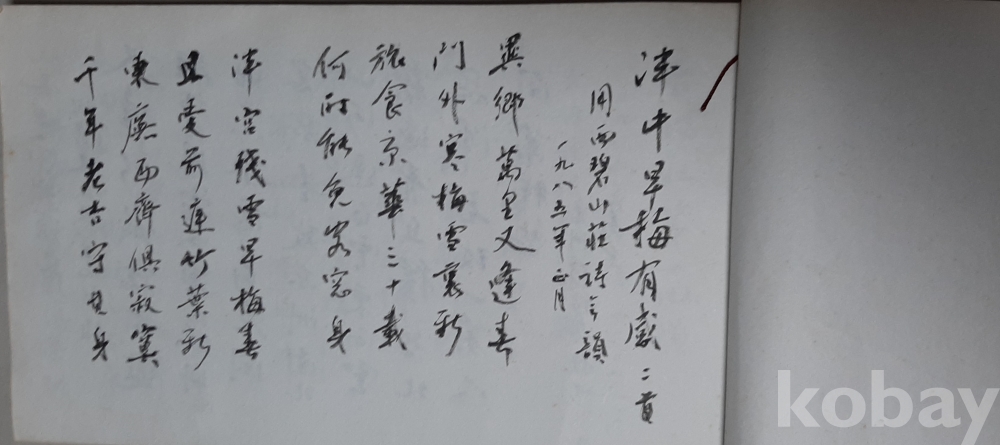 泮中早梅有感 二首
用西碧山莊詩之韻
一九八五年正月
異鄉萬里又逢春
門外寒梅雪裏新
旅食京華三十載
何時能免客窓身
泮宮殘雪早梅春
且愛前庭竹葉新
東廡西齊俱寂寞
千年老杏守其身
kobay